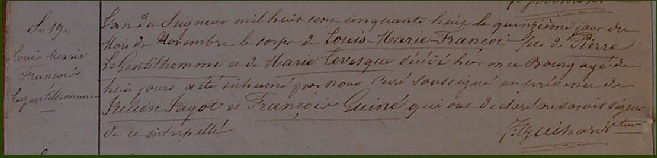 Louis Marie
François
Legentilhomme
L'an du Seigneur mil huit cent cinquante huit le quinzième jour du
Mois de Novembre le corps de Louis-Marie-François fils de Pierre
Le Gentilhomme et de Marie Levesque décédé hier au Bourg agé de
huit jours a été inhumé par nous curé soussigné en présence de
Julien Fayot et François Guiné qui ont déclaré ne savoir signer
de ce interpellé